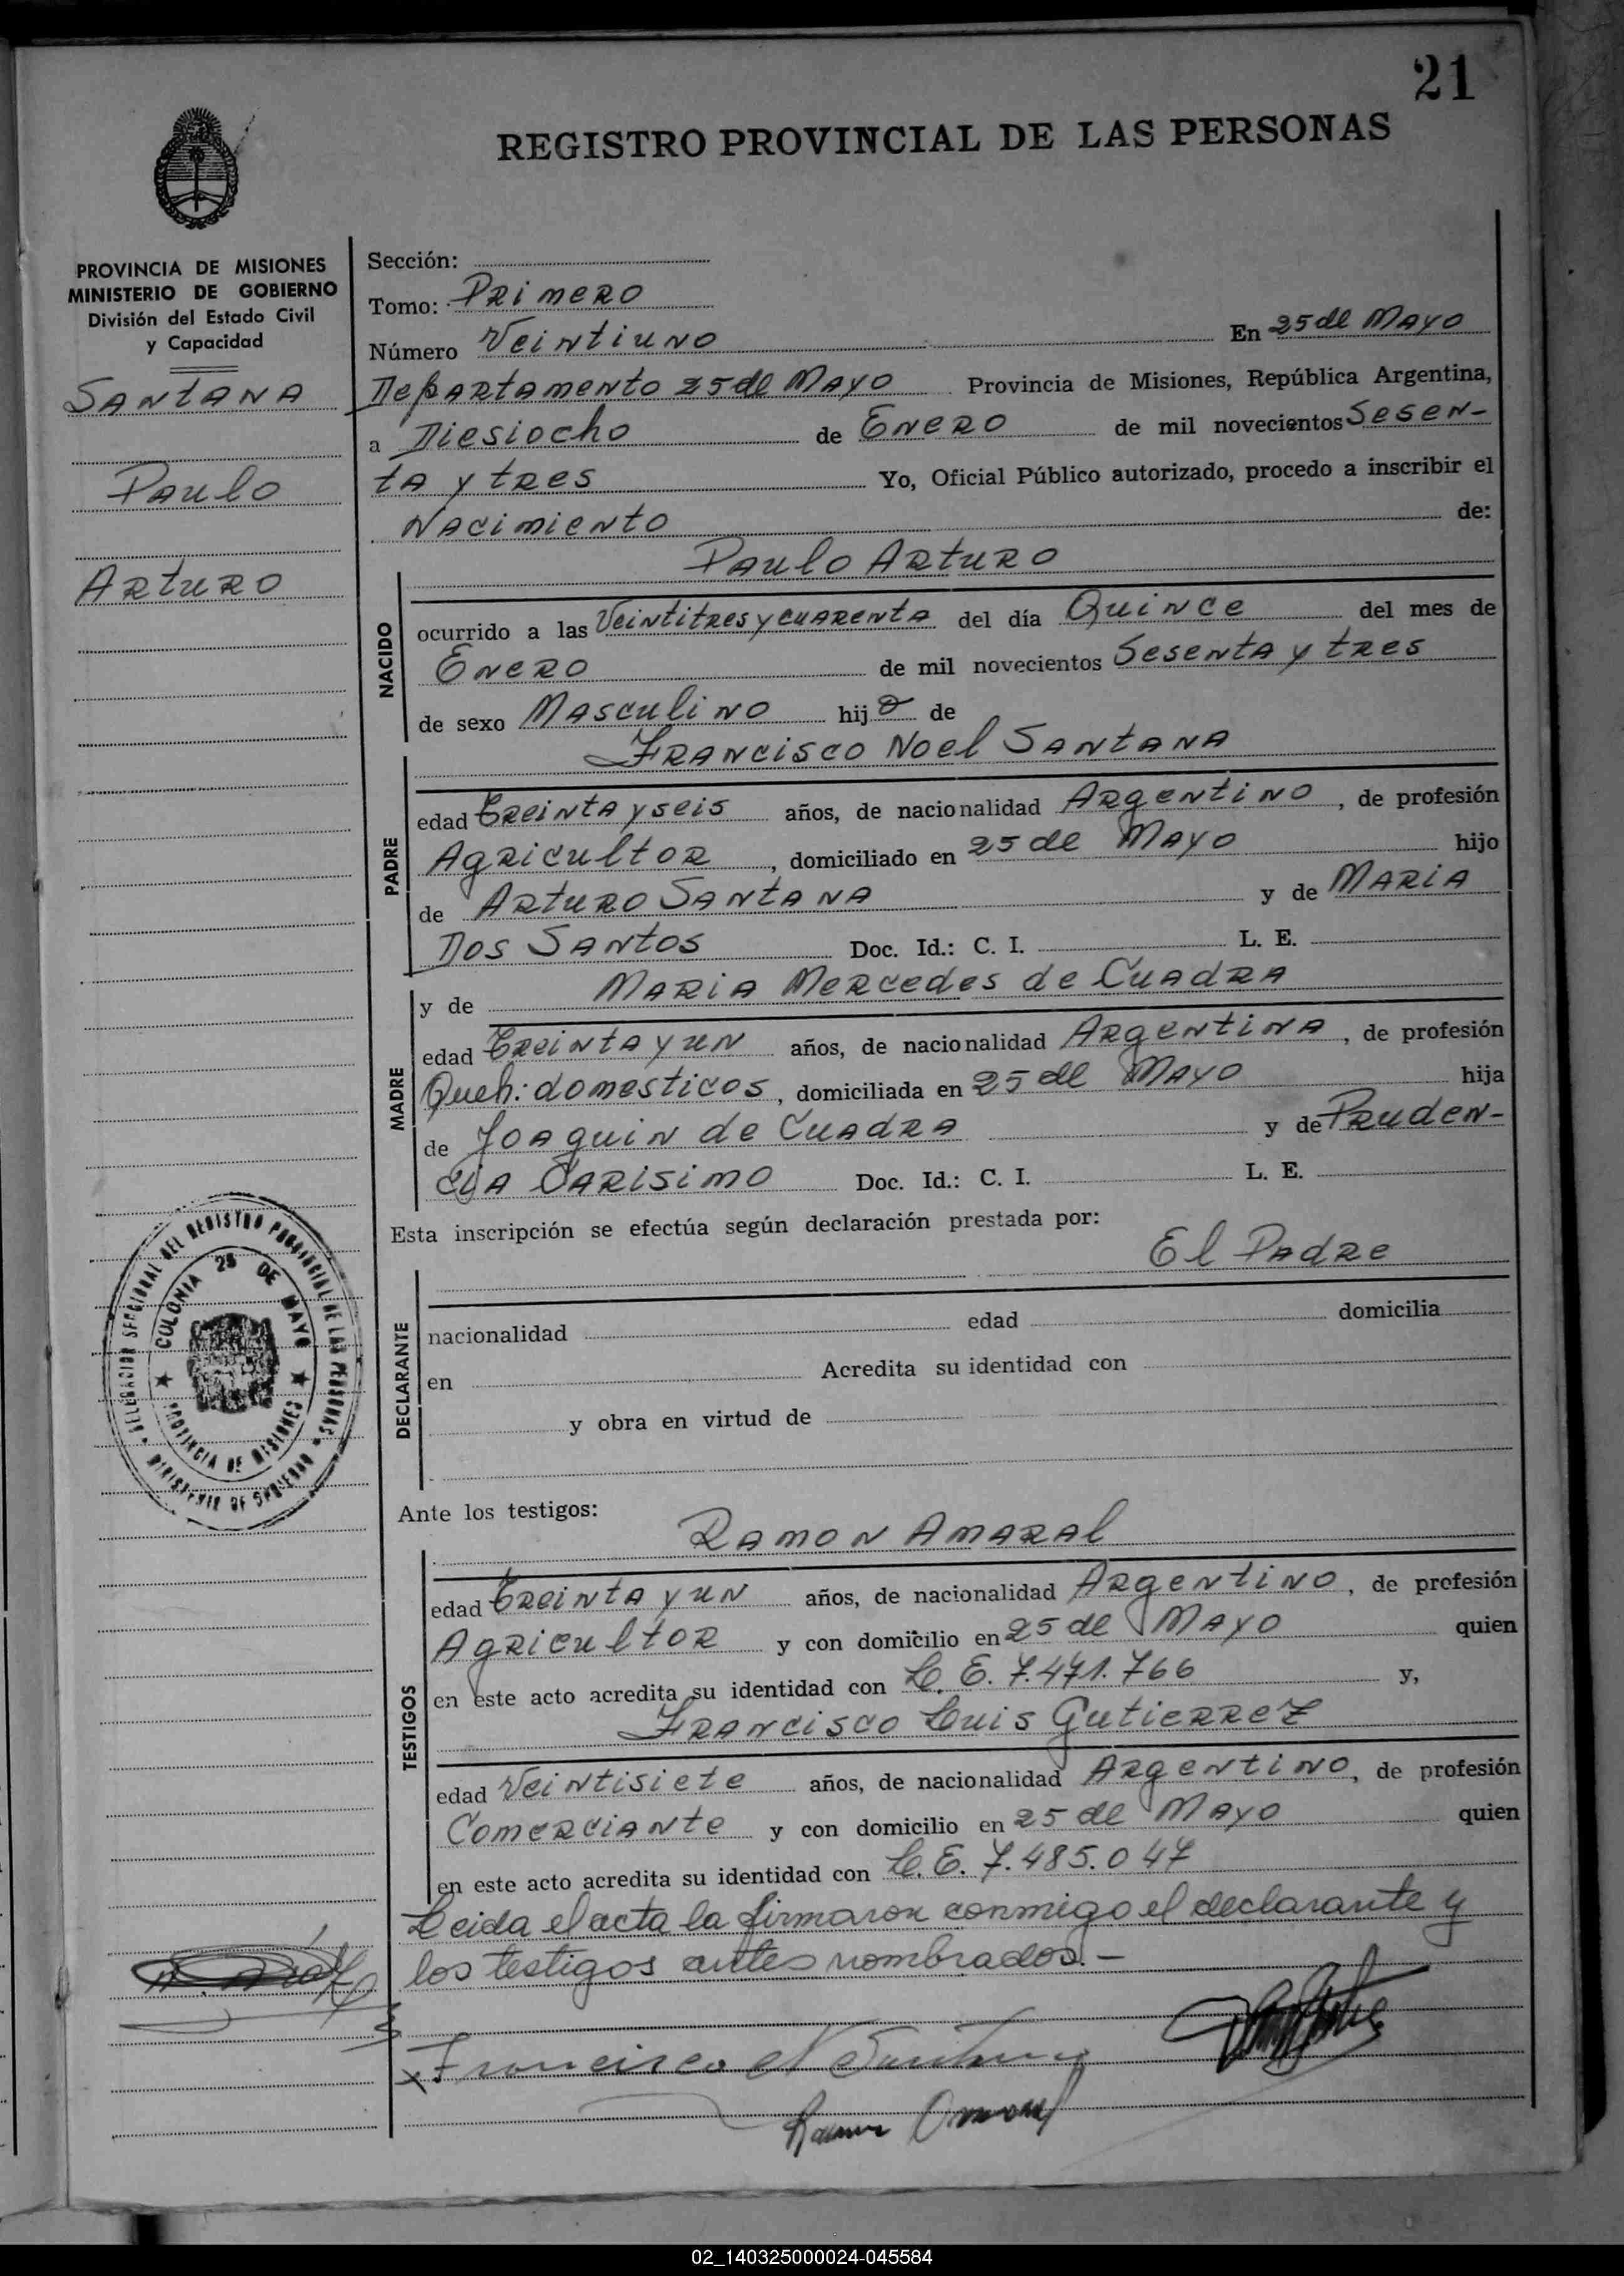 21
REGISTRO PROVINCIAL DE LAS PERSONAS
PROVINCIA DE MISIONES
MINISTERIO DE GOBIERNO
División del Estado Civil
y Capacidad
SANTANA
PAULO
ARTURO
Sección:
Tomo: PRIMERO
Número VEINTIUNO En 25 de MAYO
DepARTAMENTO 25 de MAYO Provincia de Misiones, República Argentina,
a Diesiocho de ENERO de mil novecientos SESEN-
TA y TRES Yo, Oficial Público autorizado, procedo a inscribir el
NACIMIENTO de:
PAULO ARTURO
NACIDO
ocurrido a las VEINTITRES y CUARENTA del día QUINCE del mes de
ENERO de mil novecientos SESENTA y TRES
de sexo MASCULINO hijo de
FRANCISCO NOEL SANTANA
PADRE
edad TREINTA y SEIS años, de nacionalidad ARGENTINO, de profesión
AGRICULTOR, domiciliado en 25 de MAYO hijo
de ARTURO SANTANA y de MARIA
DOS SANTOS Doc. Id.: C. I. L. E.
MADRE
y de MARIA MERCEDES de CUADRA
edad TREINTA y UN años, de nacionalidad ARGENTINA, de profesión
Queh: domesticos, domiciliada en 25 de MAYO hija
de JOAQUIN de CUADRA y de PRUDEN-
CIA CARISIMO Doc. Id.: C. I. L. E.
Esta inscripción se efectúa según declaración prestada por:
El PADRE
DECLARANTE
nacionalidad edad domicilia
en Acredita su identidad con
y obra en virtud de
DELEGACION SECCIONAL DEL REGISTRO PROVINCIAL DE LAS PERSONAS
COLONIA 25 DE MAYO
PROVINCIA DE MISIONES
MINISTERIO DE GOBIERNO
Ante los testigos:
RAMON AMARAL
TESTIGOS
edad TREINTA y UN años, de nacionalidad ARGENTINO, de profesión
AGRICULTOR y con domicilio en 25 de MAYO quien
en este acto acredita su identidad con L. E. 7.471.766 y,
FRANCISCO LUIS GUTIERREZ
edad VEINTISIETE años, de nacionalidad ARGENTINO, de profesión
COMERCIANTE y con domicilio en 25 de MAYO quien
en este acto acredita su identidad con L. E. 7.485.047
Leida el acta la firmaron conmigo el declarante y
los testigos antes nombrados.-
x Francisco N Santana
Ramon Amaral
02_140325000024-045584